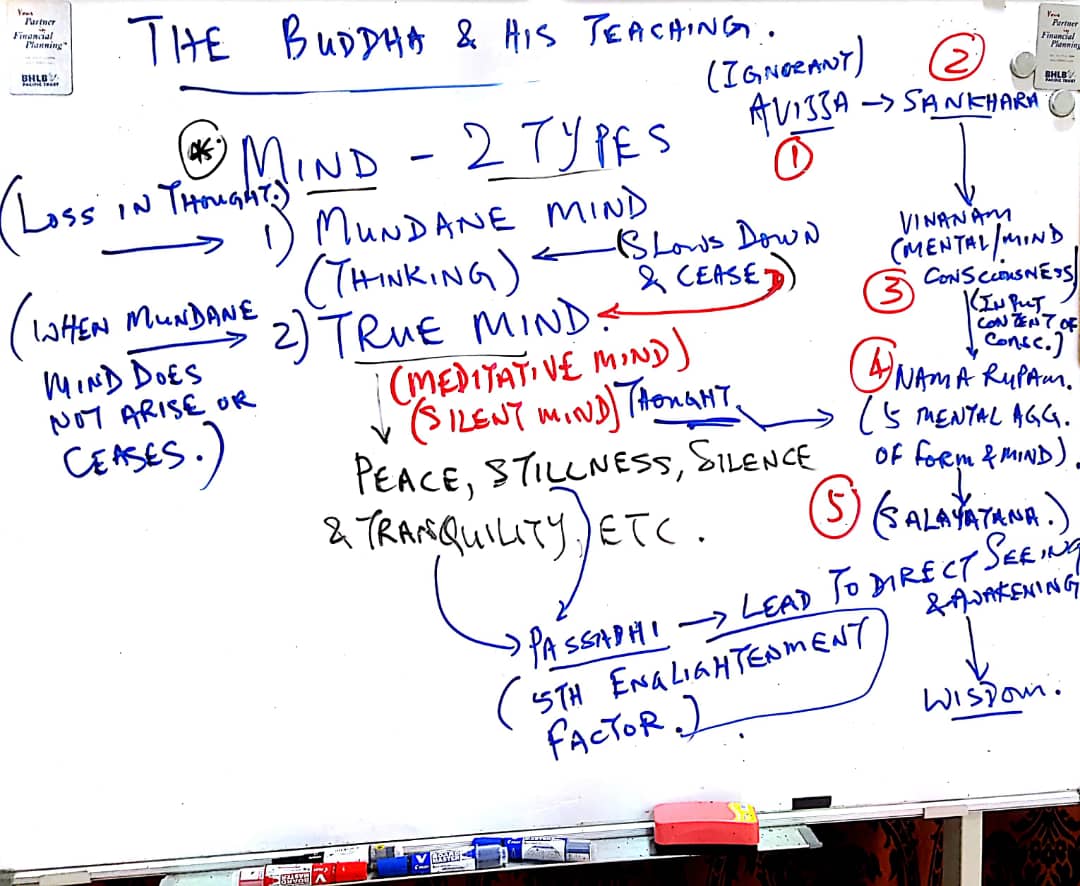 Your
Partner
in
Financial
Planning"
BHLB
PACIFIC TRUST
THE BUDDHA & HIS TEACHING.
Your
Partner
in
Financial
Planning
BHLB
PACIFIC TRUST
(IGNORANT)
②
AVIJJA → SANKHARA
①
* MIND - 2 TYPES
(LOSS IN THOUGHT.)
→ 1) MUNDANE MIND
(THINKING) ← (SLOWS DOWN
& CEASE)
(WHEN MUNDANE → 2) TRUE MIND.
MIND DOES
NOT ARISE OR
CEASES.)
(MEDITATIVE MIND)
(SILENT MIND) THOUGHT
PEACE, STILLNESS, SILENCE
& TRANQUILITY, ETC.
→ PASSADHI → LEAD TO DIRECT SEEING
& AWAKENING
(5TH ENGLIGHTENMENT
FACTOR.)
WISDOM.
VINANAM
(MENTAL/MIND
③ CONSCIOUSNESS)
(INPUT
CONTENT OF
CONSC.)
④ NAMA RUPAM.
(5 MENTAL AGG.
OF FORM & MIND).
⑤ (SALAYATANA.)
BOARD
MASTER
V BOARD
MASTER